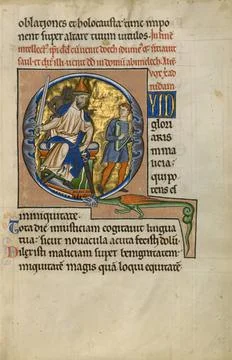 oblationes et holocausta: tunc impo
nent super altare tuum vitulos. In finē
intellect᷒ ipi dd cū venit doech idume᷒ et nuntiavit
saul et dix illi: venit dd in domū abimelech.
vox ad
iudam
QUID
glori
aris
in ma
licia:
qui po
tens es
in iniquitate.
Tota die iniusticiam cogitavit lingua
tua: sicut novacula acuta fecisti dolū.
Dilexisti maliciam super benignitatem:
iniquitatē magis quā loqui equitatē.